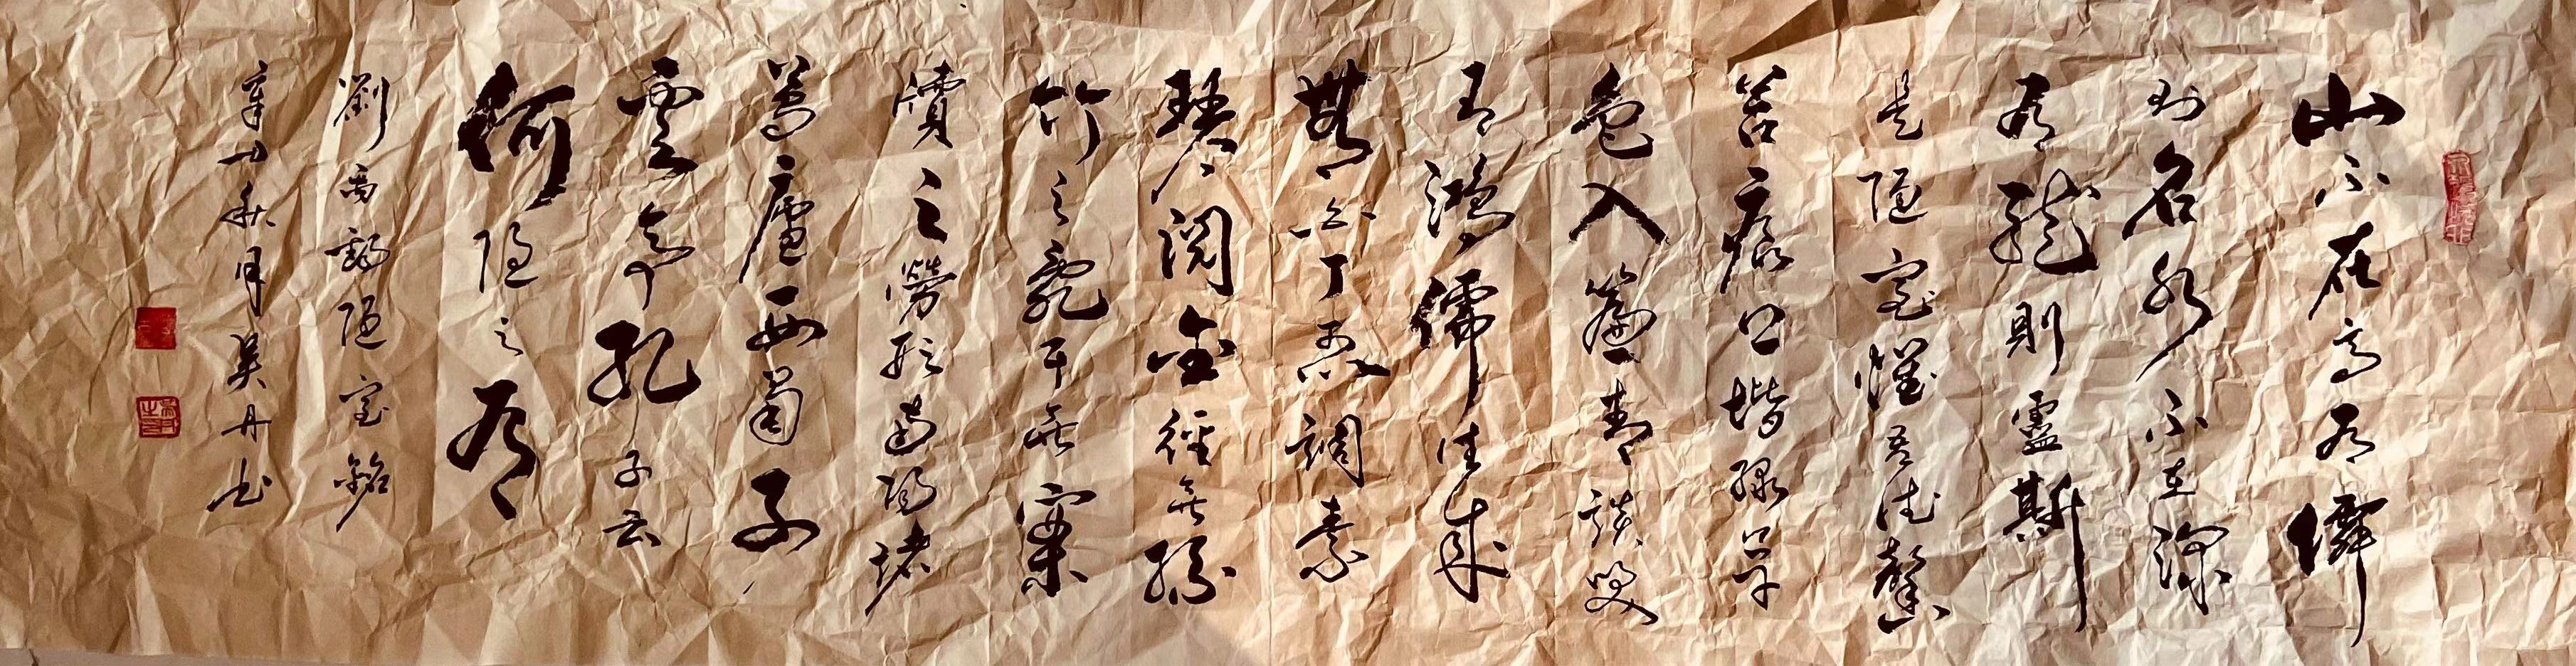 山不在高有僊
則名水不在深
有龍則靈斯
是陋室惟吾德馨
苔痕上堦綠草
色入簾青談笑
有鴻儒往來
無白丁可以調素
琴閱金經無絲
竹之亂耳無案
牘之勞形南陽諸
葛廬西蜀子
雲亭孔子云
何陋之有
劉禹錫陋室銘
辛丑秋月吳丹書